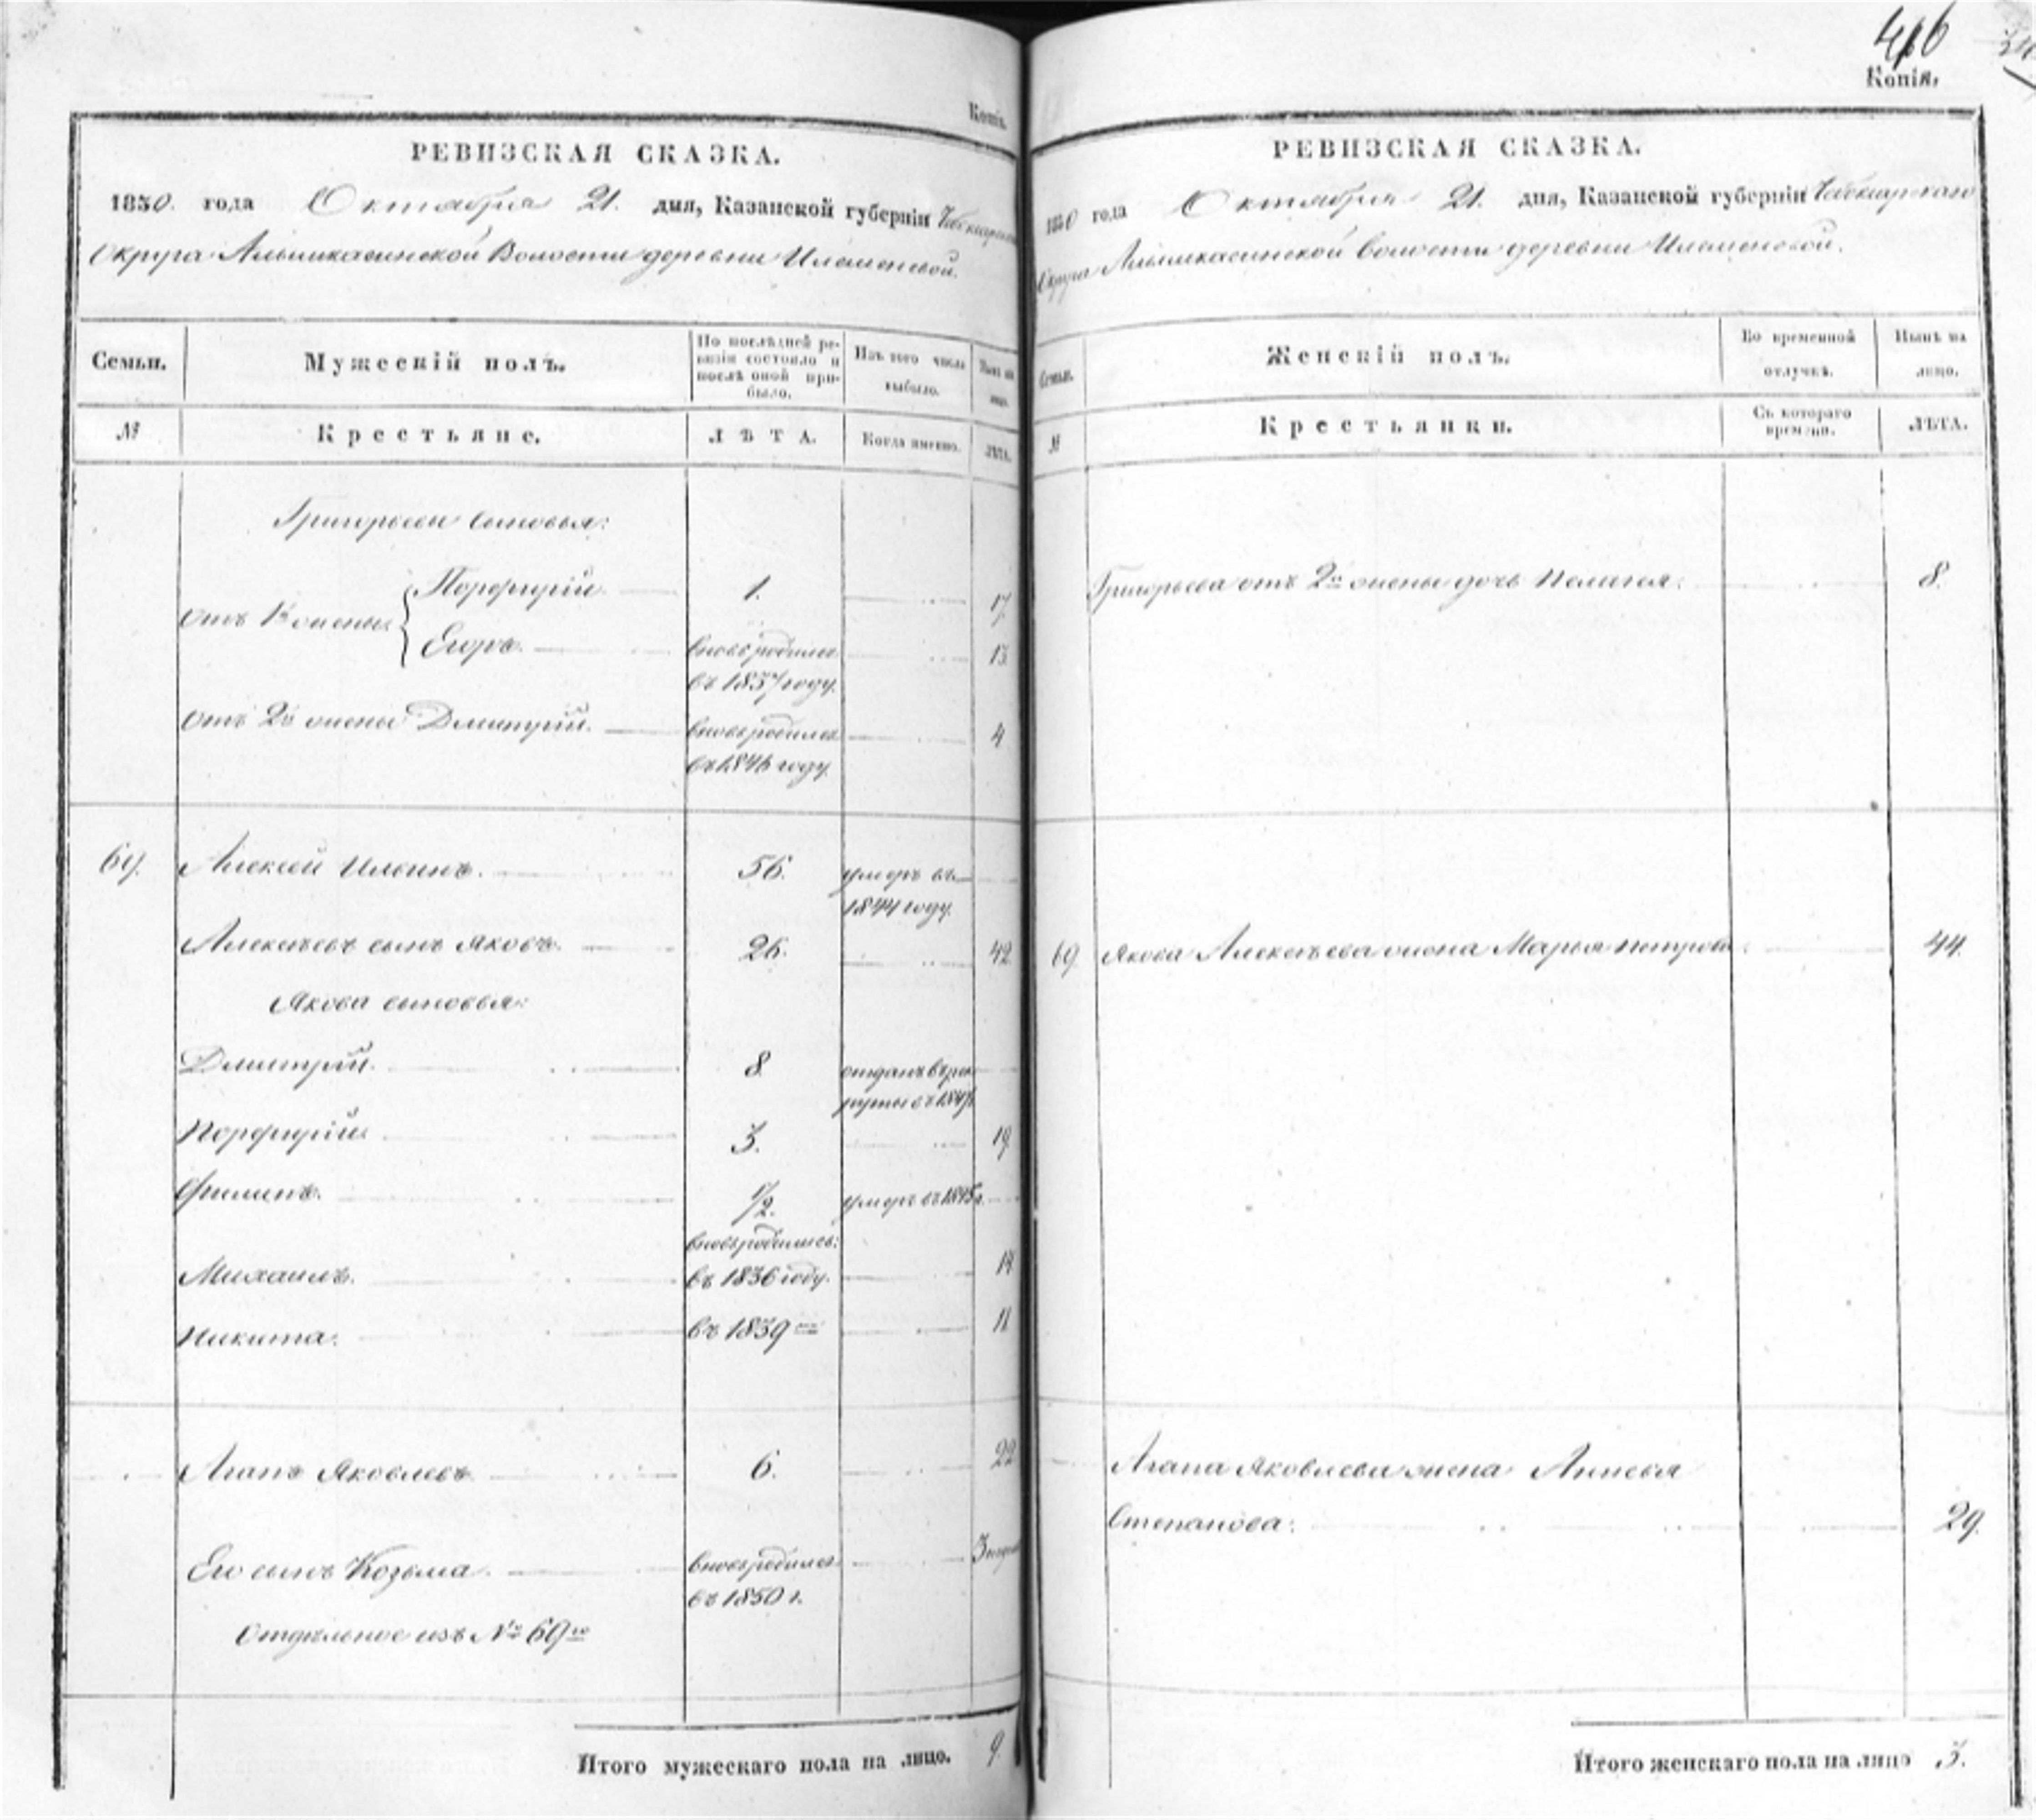 Копія.
РЕВИЗСКАЯ СКАЗКА.
1850. года Октября 21. дня, Казанской губерніи Чебоксарскаго
Округа Алымкасинской Волости деревни Илеменевой.
Семьи. Мужескій полъ. По послѣдней ре- Изъ того числа Нынѣ на
визіи состояло и выбыло. лицо.
послѣ оной при-
было.
№ Крестьяне. ЛѢТА. Когда именно. ЛѢТА.
Григорьевы сыновья:
Отъ 1й жены: Порфирій 1. 17
Егоръ. вновь родился 13
въ 1837 году.
Отъ 2й жены Дмитрій. вновь родился 4
въ 1846 году
69. Алексѣй Ильинъ. 56. умеръ въ
1844 году.
Алексѣевъ сынъ Яковъ. 26. 42
Якова сыновья:
Дмитрій. 8 отданъ въ рек-
руты въ 1847
Порфирій. 3. 19
Филипъ. 1/2. умеръ въ 1845 г.
вновь родились:
Михаилъ. въ 1836 году. 14
Никита. въ 1839 11
Агапъ Яковлевъ 6. 22
Его сынъ Козьма. вновь родился 3 недѣли
въ 1850 г.
Отдѣльное изъ № 69го
Итого мужескаго пола на лицо. 9.
46
Копія.
РЕВИЗСКАЯ СКАЗКА.
1850 года Октября 21. дня, Казанской губерніи Чебоксарскаго
Округа Алымкасинской волости деревни Илеменевой.
Семьи. Женскій полъ. Во временной Нынѣ на
отлучкѣ. лицо.
№ Крестьянки. Съ котораго ЛѢТА.
времени.
Григорьева отъ 2й жены дочь Пелагея. 8.
69 Якова Алексѣева жена Марья Петрова. 44.
Агапа Яковлева жена
Степанова. 29.
Итого женскаго пола на лицо 3.